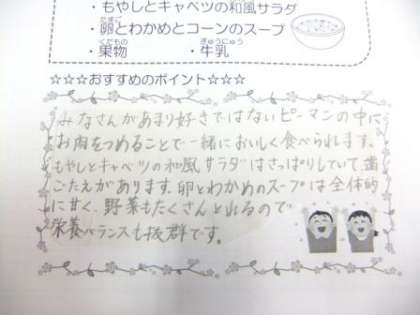 ・もやしとキャベツの和風サラダ
・卵とわかめとコーンのスープ
・果物　・牛乳
☆☆☆おすすめのポイント☆☆☆
みなさんがあまり好きではないピーマンの中に
お肉をつめることで一緒においしく食べられます。
もやしとキャベツの和風サラダはさっぱりしていて、歯
ごたえがあります。卵とわかめのスープは全体的
に甘く、野菜もたくさんとれるので
栄養バランスも抜群です。